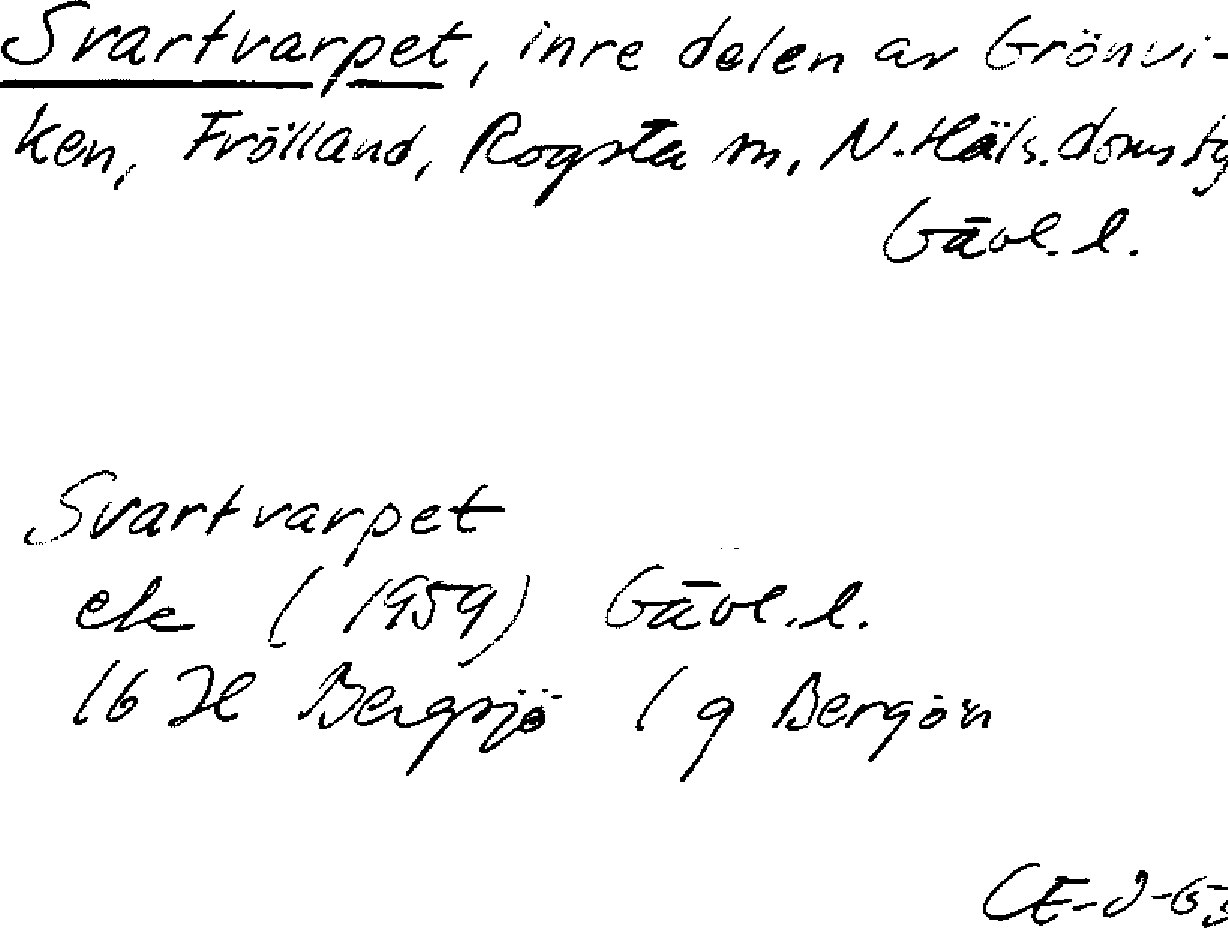 Svartvarpet, inre delen av Grönvi-
ken, Frölland, Rogsta sn, N. Häls. doms
Gävl. l.
Svartvarpet
ek (1959) Gävl. l.
16 H Bergsjö 1 g Bergön